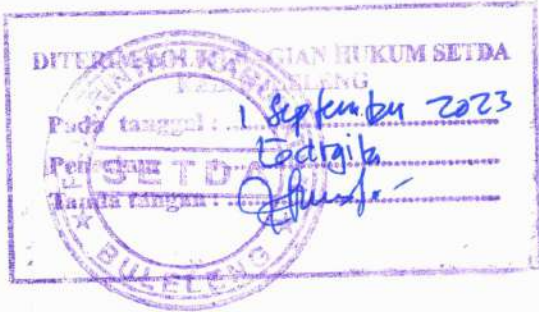 DITERIMA OLEH BAGIAN HUKUM SETDA
KAB. BULELENG
Pada tanggal : 1 September 2023
Penerima
Tanda tangan :
SETDA
BULELENG